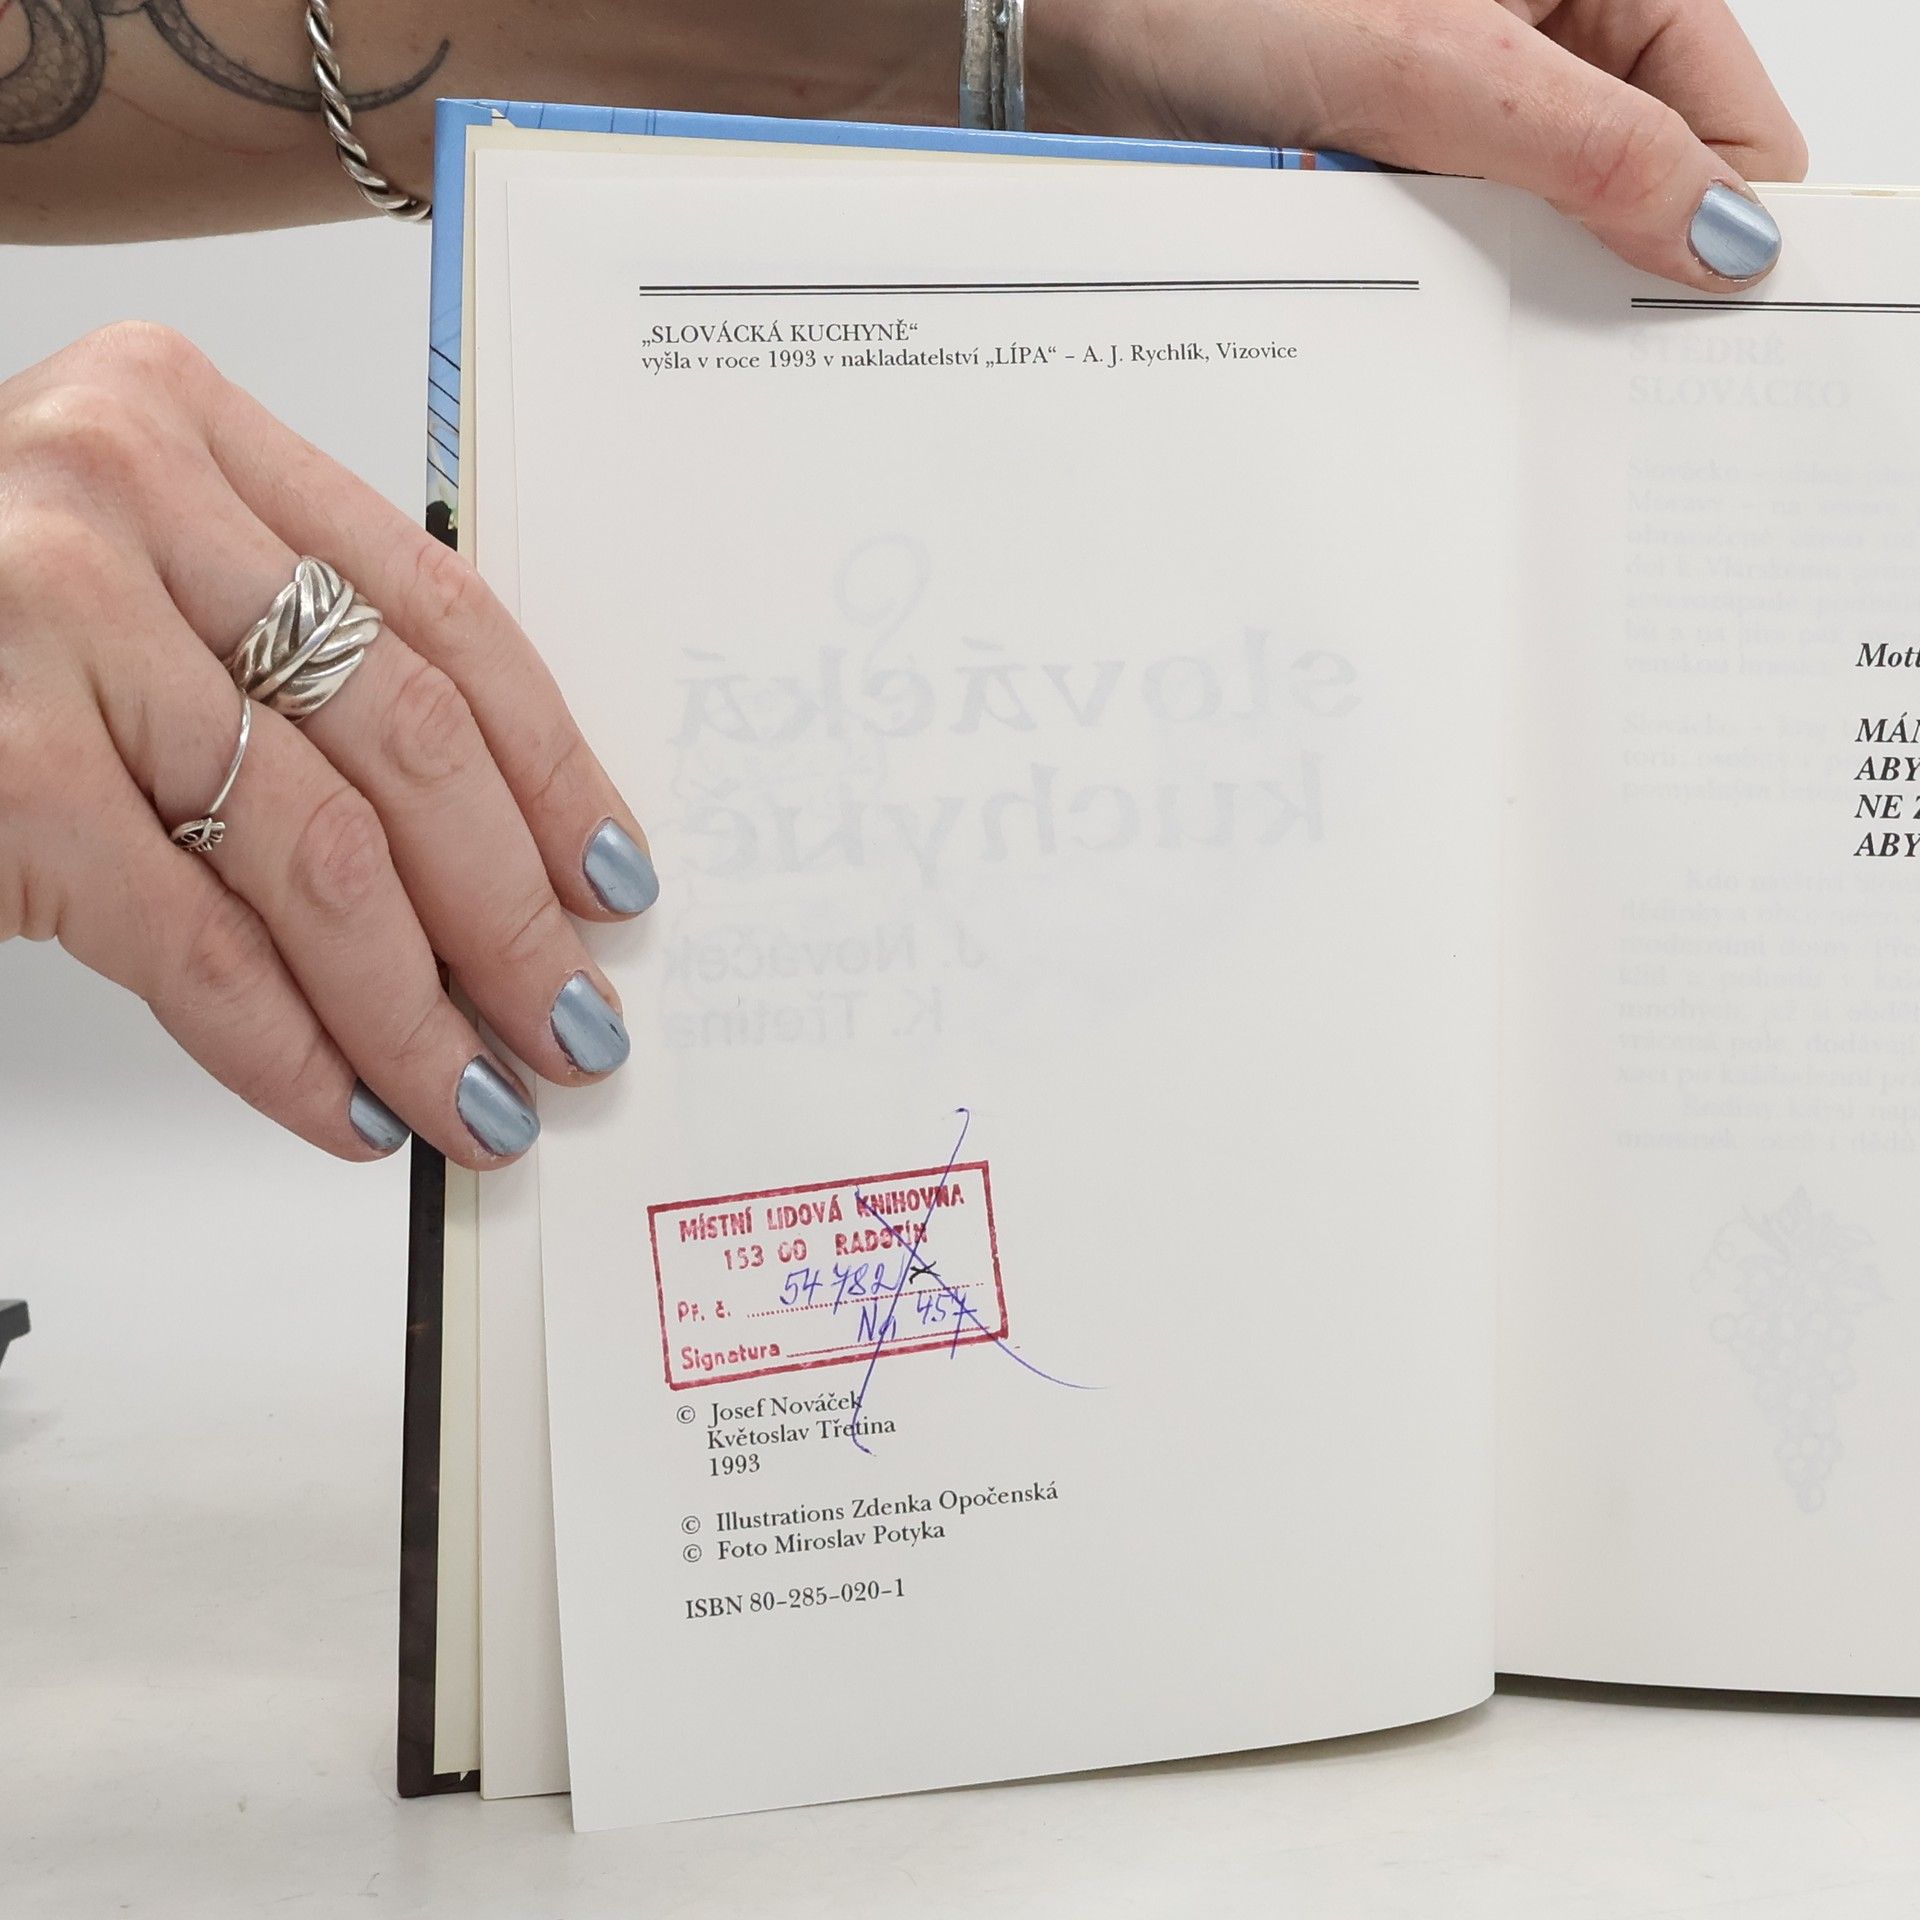 „SLOVÁCKÁ KUCHYNĚ“
vyšla v roce 1993 v nakladatelství „LÍPA“ – A. J. Rychlík, Vizovice
slovácká
kuchyně
J. Nováček
K. Třetina
MÍSTNÍ LIDOVÁ KNIHOVNA
153 00 RADOTÍN
Př. č. 54782
Signatura Na 457
© Josef Nováček
Květoslav Třetina
1993
© Illustrations Zdenka Opočenská
© Foto Miroslav Potyka
ISBN 80-285-020-1
ŠTĚDRÉ
SLOVÁCKO
Mott
MÁN
ABY
NE Z
ABY